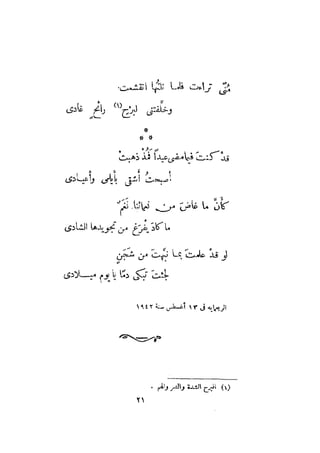 مُنًى تراءت فلما نلتُها انقشعت.
وخلَّفتنى لبرْحٍ (١) رائحٍ غادى
*
* *
قد كنتَ فيما مضى عيداً فمُذْ ذهبتْ
أصبحتُ أشقى بأيامى وأعيادى
كأنَّ ما غاضَ من نعمائنا. نَغَمٌ
ما كادَ يفرُغ من تجويدها الشادى
لو قد علمتَ بما نبَّهتَ من شجَنٍ
لجئتَ تبكى دمًا يا يوم ميـــلادى
الرحمانيه فى ١٣ أغسطس سنة ١٩٤٢
(١) البرح الشدة والشر والهم .
٢١